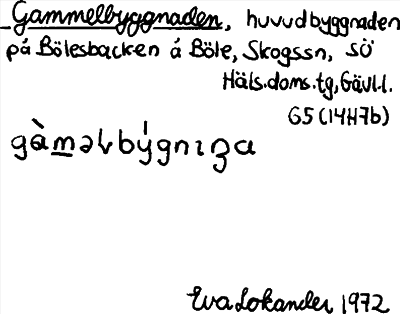 Gammelbyggnaden, huvudbyggnaden
på Bölesbacken å Böle, Skogssn, SÖ
Häls.doms.tg, Gävl.l.
G5 (14H7b)
Eva Lokander 1972